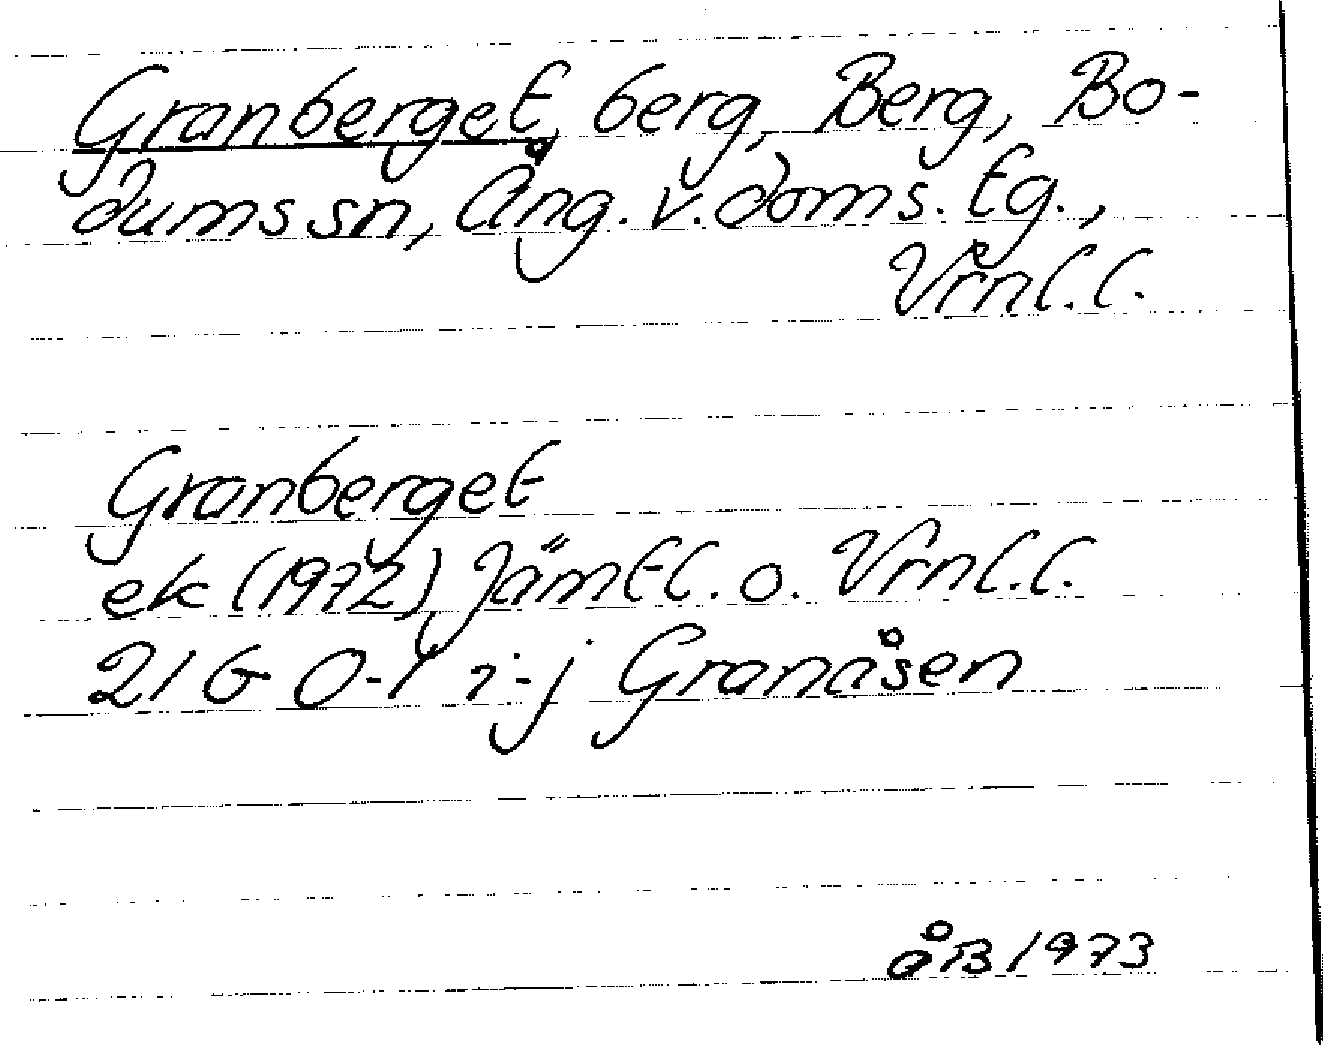 Granberget, berg, Berg, Bo-
dums sn, Ång. v. doms. tg.,
Vrnl. l.
Granberget
ek (1972) Jämtl. o. Vrnl. l.
21 G 0-1 i-j Granåsen
åB 1973